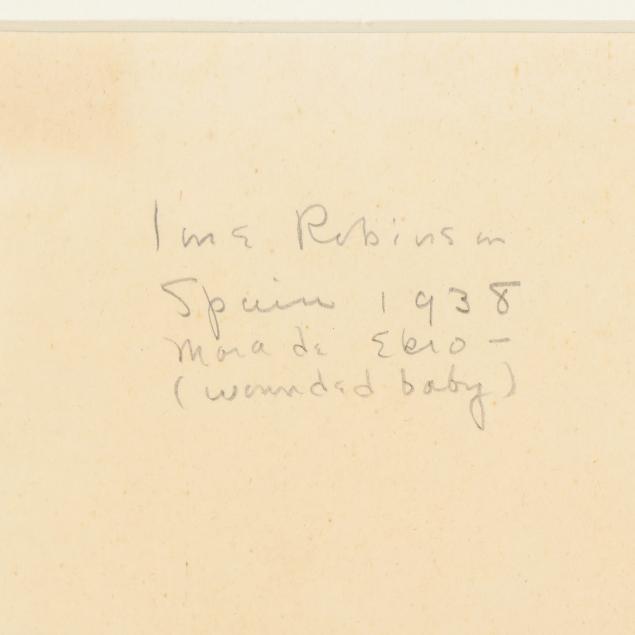 Ione Robinson
Spain 1938
Mora de Ebro -
(wounded baby)